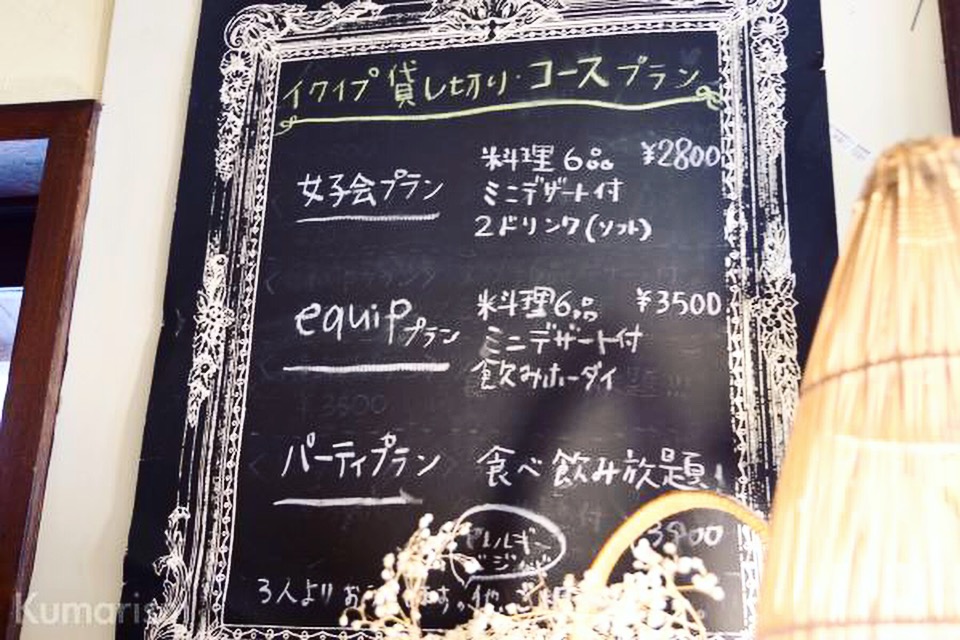 イクイプ 貸し切り・コースプラン
女子会プラン
料理6品 ¥2800
ミニデザート付
2ドリンク(ソフト)
equipプラン
料理6品 ¥3500
ミニデザート付
飲みホーダイ
パーティプラン
食べ飲み放題!
3900
3人より
Kumaris